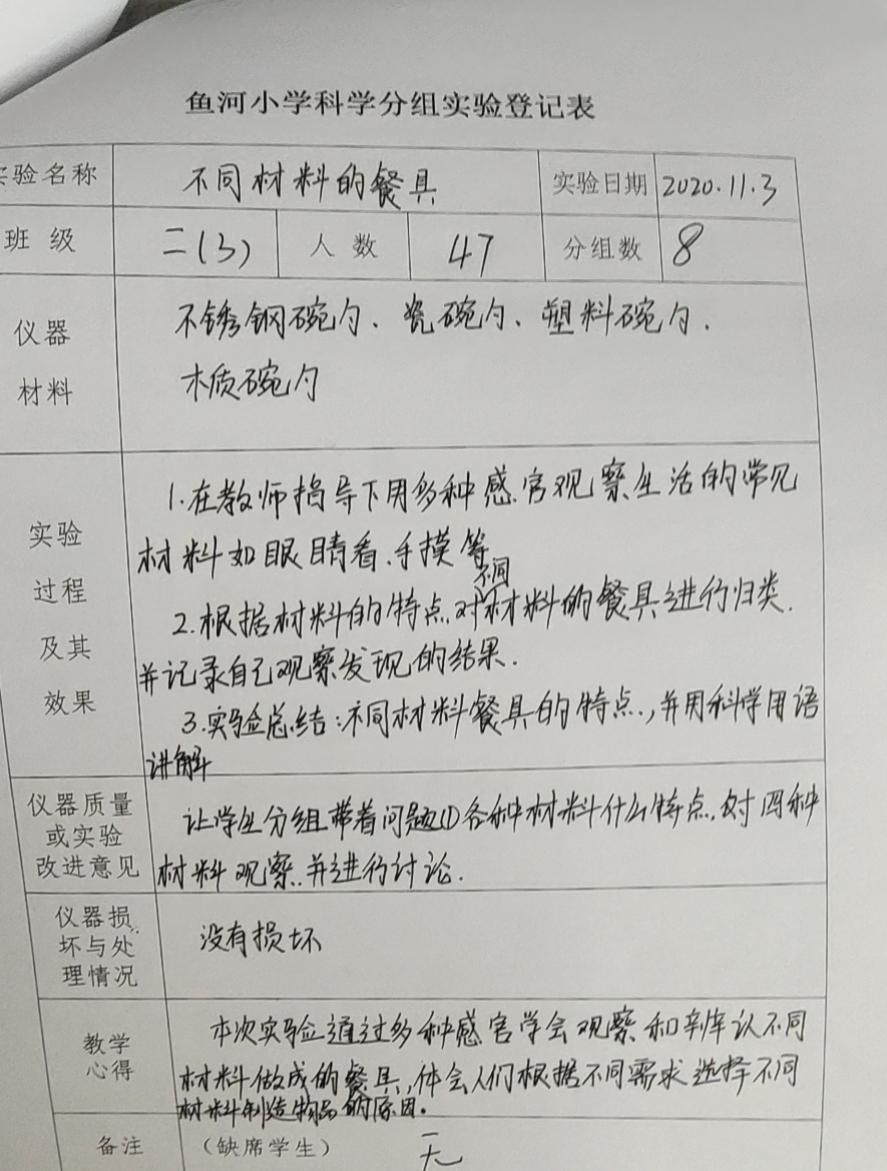 鱼河小学科学分组实验登记表
实验名称 不同材料的餐具 实验日期 2020.11.3
班 级 二(3) 人 数 47 分组数 8
仪器
材料
不锈钢碗勺、瓷碗勺、塑料碗勺.
木质碗勺
实验
过程
及其
效果
1.在教师指导下用多种感官观察生活的常见
材料如眼睛看、手摸等
2.根据材料的特点,对不同材料的餐具进行归类.
并记录自己观察发现的结果.
3.实验总结:不同材料餐具的特点,并用科学用语
讲解
仪器质量
或实验
改进意见
让学生分组带着问题①各种材料什么特点,对四种
材料观察.并进行讨论.
仪器损
坏与处
理情况
没有损坏
教学
心得
本次实验通过多种感官学会观察和辨认不同
材料做成的餐具,体会人们根据不同需求选择不同
材料制造物品的原因.
备注 (缺席学生) 无